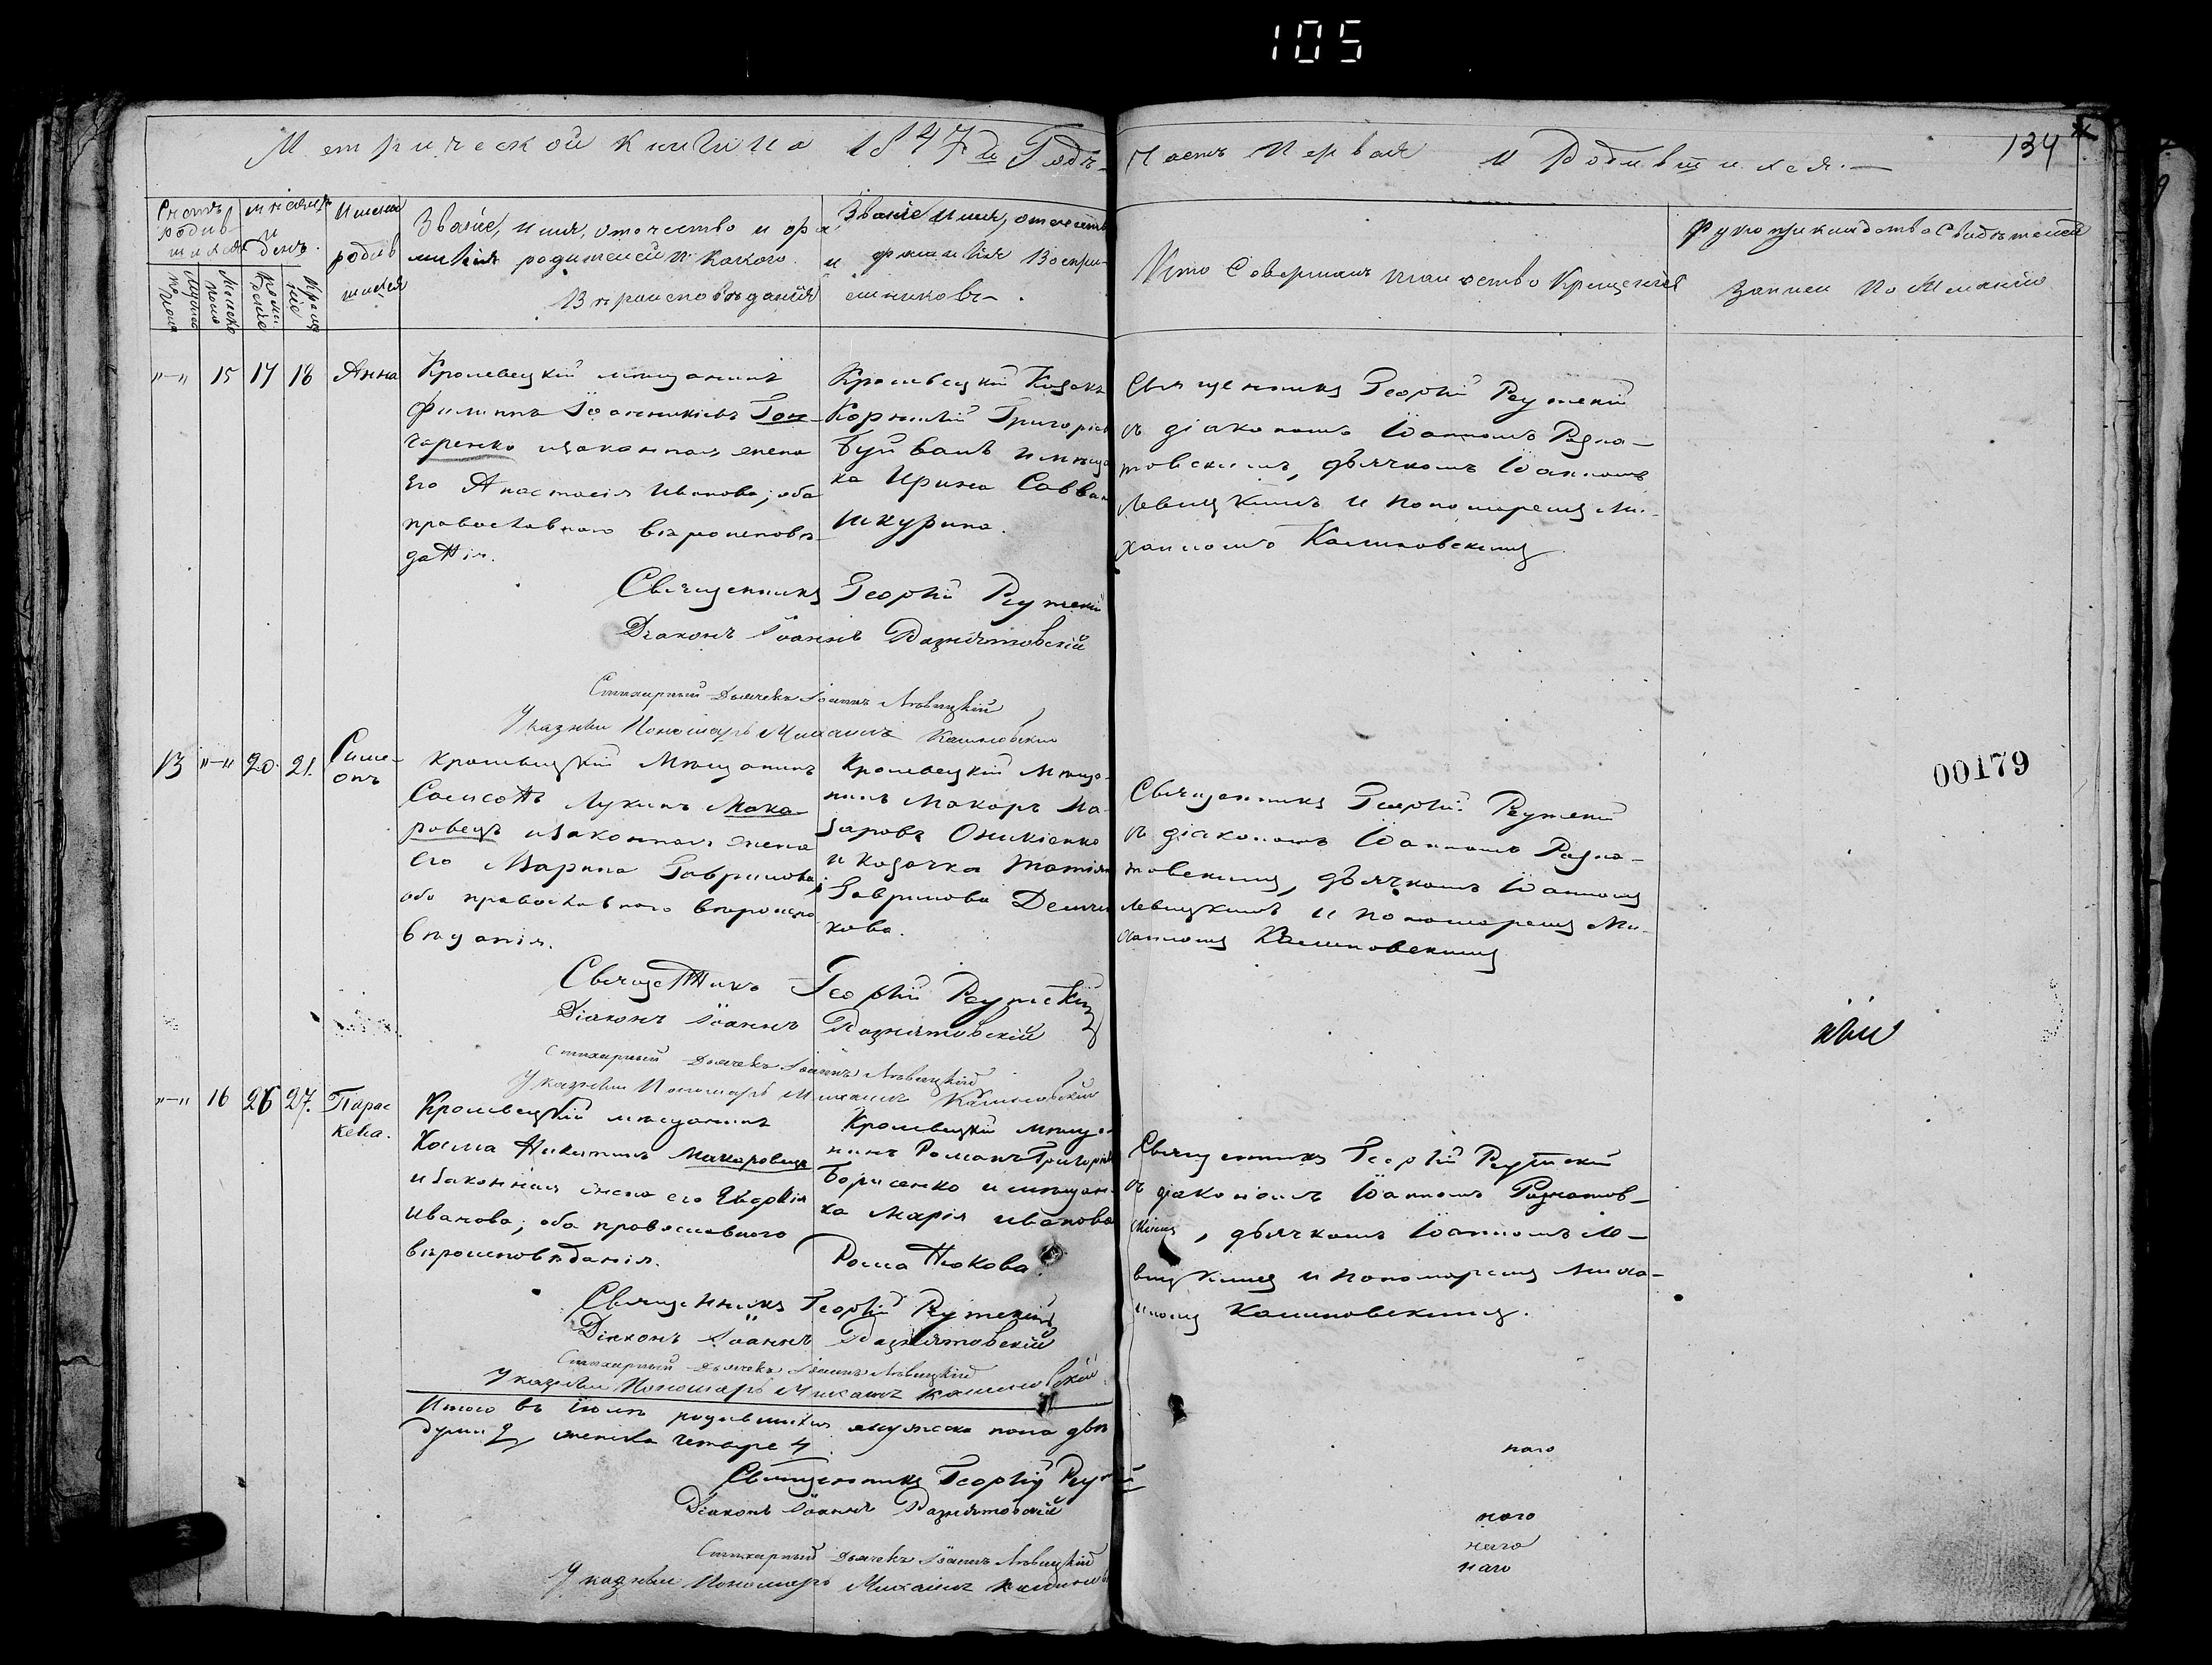 105
Метрической книги на 1847й Годъ
Часть Первая о Родившихся.
134
Счетъ родив-
шихся
мѣсяцъ
и
день.
Имена
родив
шихся
Званіе, имя, отечество и фа
милія родителей и какого
Вѣроисповѣданія
Званіе имя, отечество
и фамилія Воспри-
емниковъ.
Кто Совершалъ таинство Крещенія
Рукоприкладство Свидѣтелей
записи по Желанію
"—" 15 17 18 Анна
Кролевецкій мѣщанинъ
Филиппъ Іоанникіевъ Гон-
чаренко и законная жена
его Анастасія Иванова; оба
православнаго вѣроисповѣ-
данія.
Кролевецкій Козакъ
Корнилій Григоріевъ
Буйвалъ и мѣщан
ка Ирина Саввин
Шкурина.
Священникъ Георгій Реутскій
съ діакономъ Іоанномъ Разня-
товскимъ, дьячкомъ Іоанномъ
Левицкимъ и пономаремъ Ми-
хаиломъ Калиновскимъ.
Священникъ Георгій Реутскій
Діаконъ Іоаннъ Разнятовскій
Стихарный Дьячекъ Іоаннъ Лѣвицкій
Указный Пономарь Михаилъ Калиновскій
13 "—" 20. 21. Симе-
онъ
Кролевецкій Мѣщанинъ
Самсонъ Лукинъ Мака-
ровецъ и законная жена
его Марина Гаврилова;
оба православнаго вѣроиспо
вѣданія.
Кролевецкій Мѣща-
нинъ Макаръ На-
заровъ Оникіенко
и козачка Татіана
Гаврилова Демчен
кова.
Священникъ Георгій Реутскій
съ діакономъ Іоанномъ Разня-
товскимъ, дьячкомъ Іоанномъ
Левицкимъ и пономаремъ Ми-
хаиломъ Калиновскимъ
00179
Священникъ Георгій Реутскій
Діаконъ Іоаннъ Разнятовскій
Стихарный Дьячекъ Іоаннъ Лѣвицкій
Указный Пономарь Михаилъ Калиновскій
"—" 16 26 27. Парас
кева.
Кролевецкій мѣщанинъ
Косма Никитинъ Макаровецъ
и законная жена его Евдокія
Иванова; оба православнаго
вѣроисповѣданія.
Кролевецкій мѣща-
нинъ Романъ Григорьевъ
Борисенко и мѣщан-
ка Марія Иванова
Романюкова.
Священникъ Георгій Реутскій
съ діакономъ Іоанномъ Разнятов-
скимъ, дьячкомъ Іоанномъ Ле-
вицкимъ и пономаремъ Миха-
иломъ Калиновскимъ.
Священникъ Георгій Реутскій
Діаконъ Іоаннъ Разнятовскій
Стихарный Дьячекъ Іоаннъ Лѣвицкій
Указный Пономарь Михаилъ Калиновскій
Итого въ Іюлѣ родившихся мужска пола двѣ
души 2, женска четыре 4
Священникъ Георгій Реутскій
Діаконъ Іоаннъ Разнятовскій
Стихарный Дьячекъ Іоаннъ Лѣвицкій
Указный Пономарь Михаилъ Калиновс
наго
наго
наго
наго